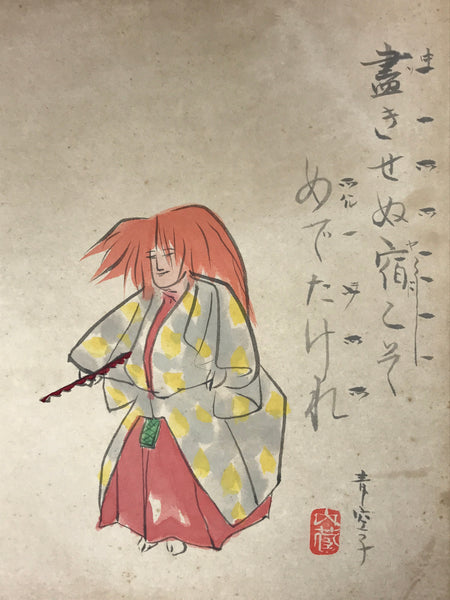 盡きせぬ宿こそ
めでたけれ
青空子